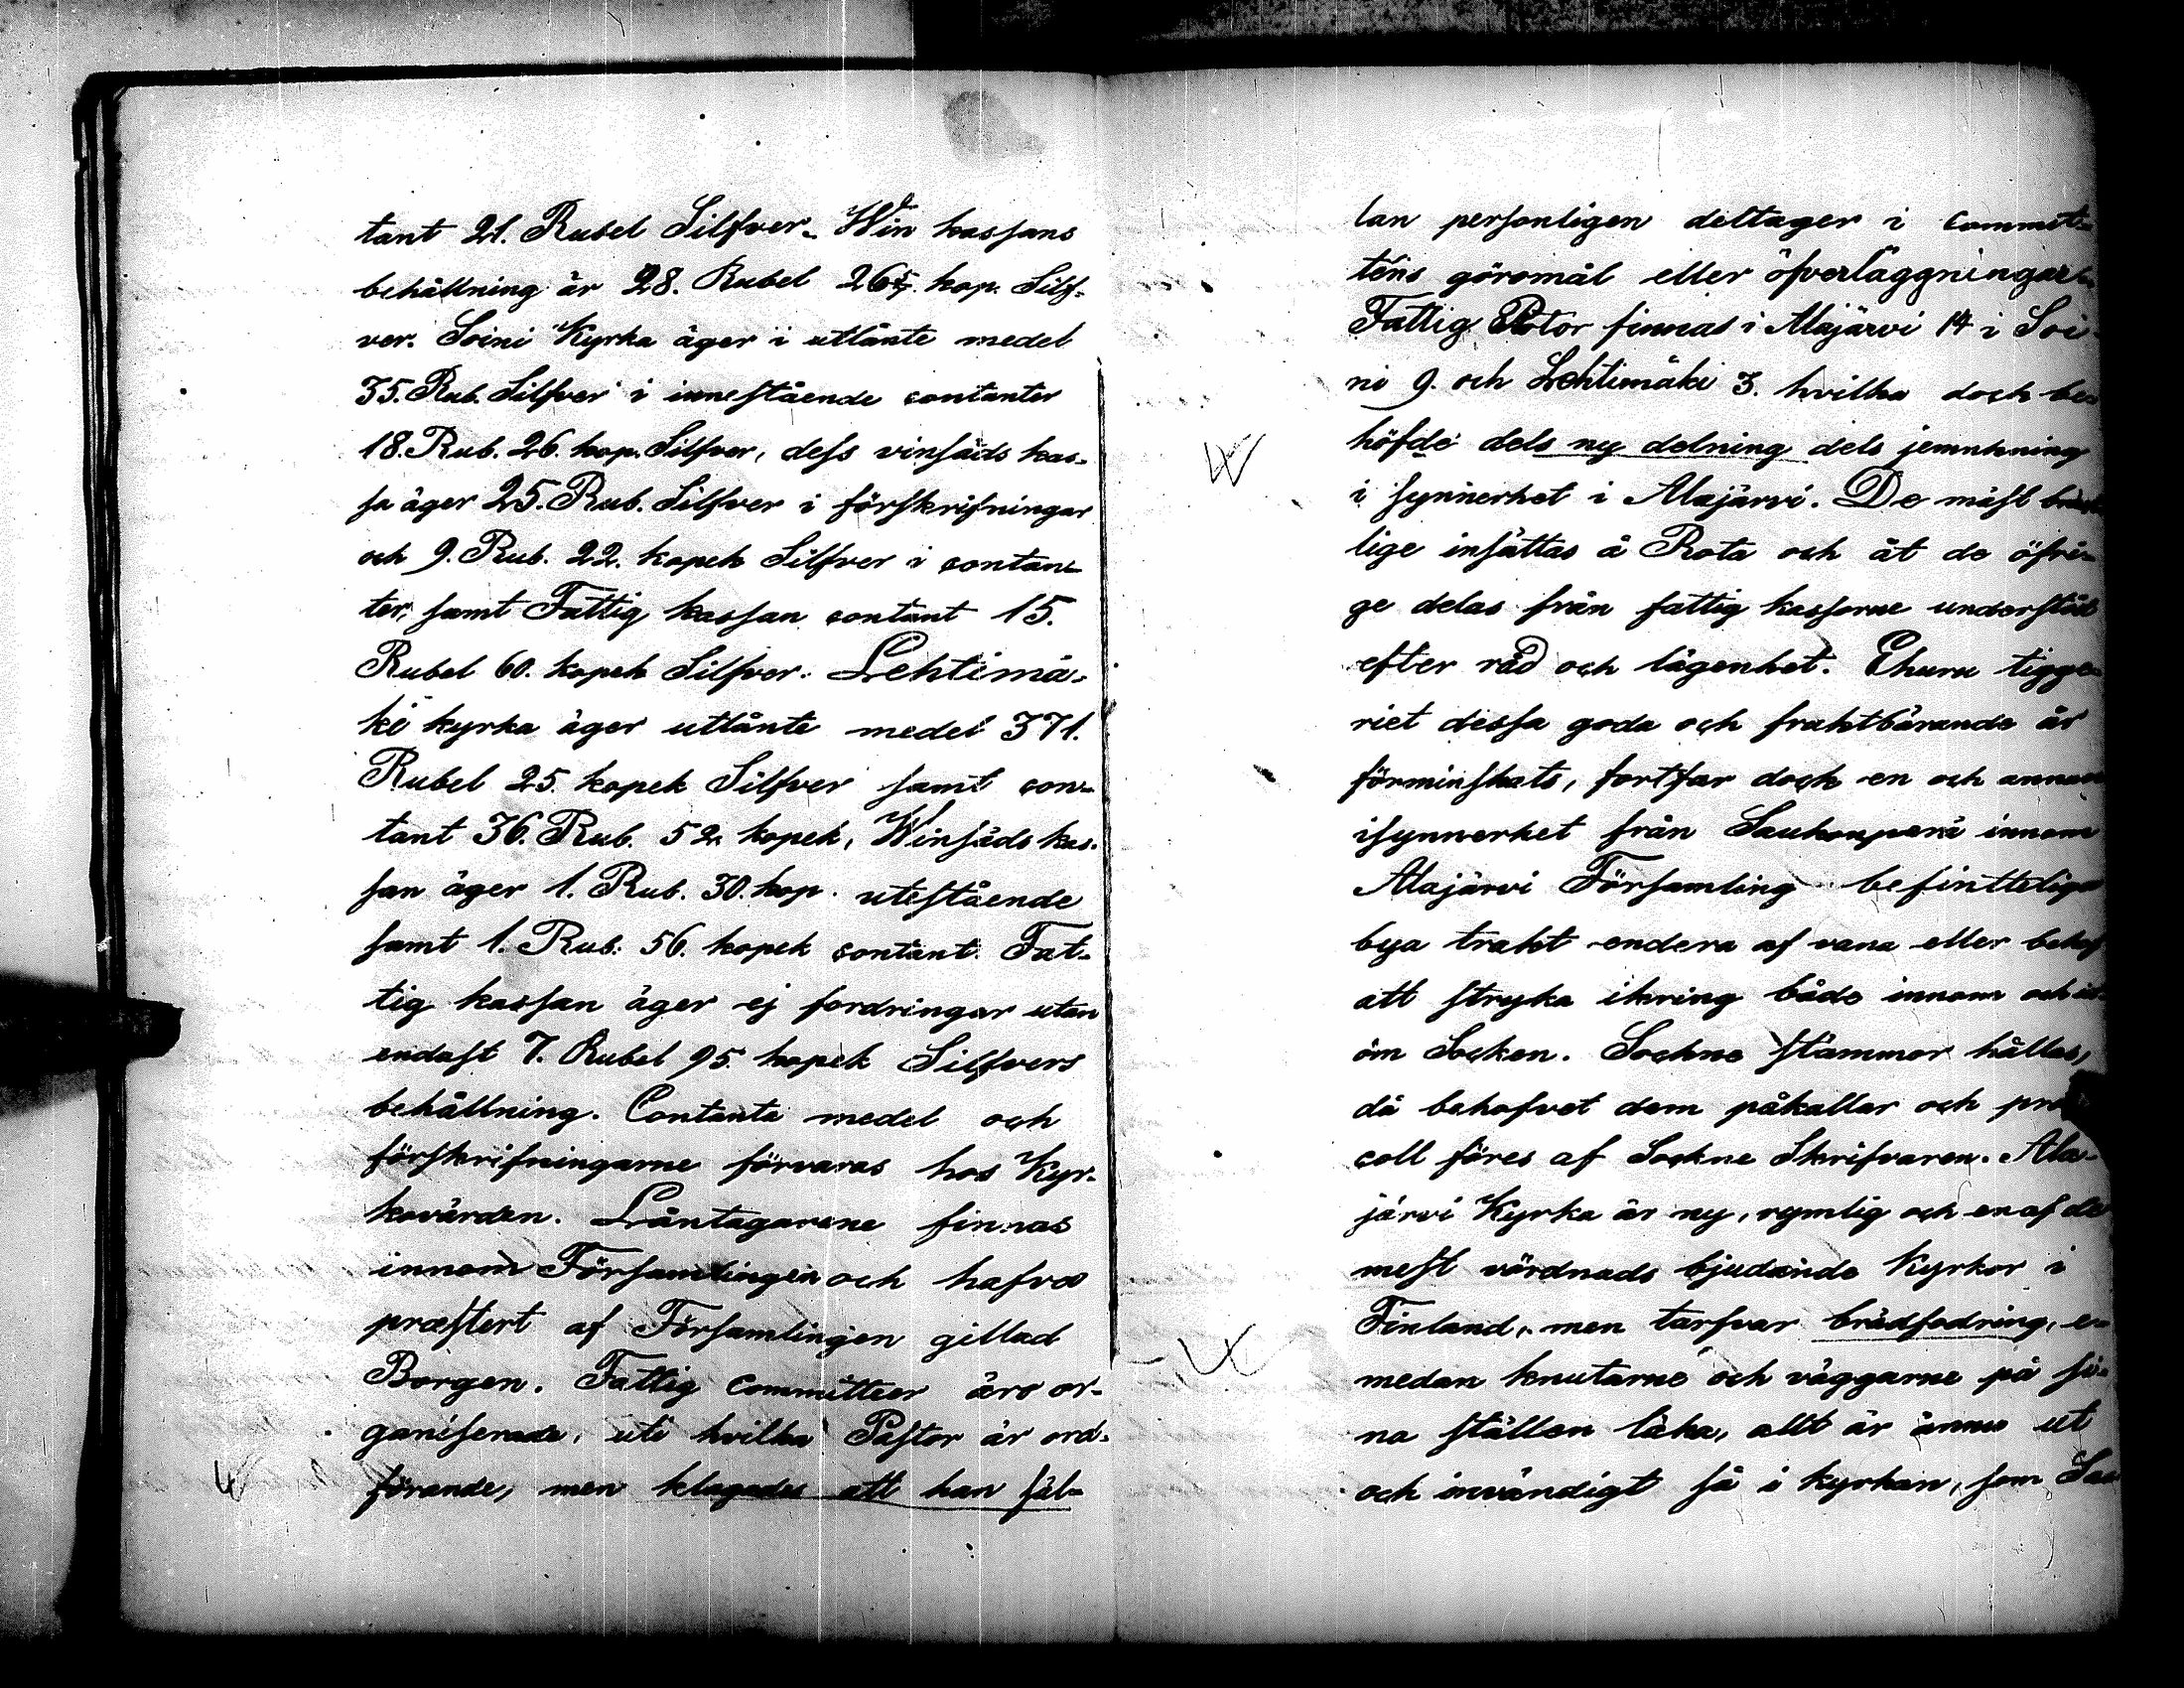 tant 21. Rubel Silfver. Win kassans
behållning är 28. Rubel 26 5/7. kop. Silf-
ver. Soini Kyrka äger i utlånte medel
35. Rub. Silfver i innestående contanter
18. Rub. 26. kop. Silfver, dess vinsäds kas-
sa äger 25. Rub. Silfver i förskrifningar
och 9. Rub. 22. kopek Silfver i contan-
ter, samt Fattig kassan contant 15.
Rubel 60. kopek Silfver. Lehtimä-
ki kyrka äger utlånte medel 371.
Rubel 25. kopek Silfver samt con-
tant 36. Rub. 52. kopek, Winsäds kas-
san äger 1. Rub. 30. kop. utestående
samt 1. Rub. 56. kopek contant. Fat-
tig kassan äger ej fordringar utan
endast 7. Rubel 95. kopek Silfvers
behållning. Contanta medel och
förskrifningarne förvaras hos Kyr-
kovärden. Låntagarene finnas
innom Församlingen och hafva
præstert af Församlingen gillad
Borgen. Fattig committeer äro or-
ganiserade, uti hvilka Pastor är ord-
förande, men klagades att han säl-
lan personligen deltager i commit-
téns göromål eller öfverläggningar.
Fattig Rotor finnas i Alajärvi 14 i Soi-
ni 9. och Lehtimäki 3. hvilka dock be-
höfde dels ny delning dels jemnkning
i synnerhet i Alajärvi. De mäst
lige insättas å Rota och åt de öfri-
ge delas från fattig kasserne understöd
efter råd och lägenhet. Ehuru tigge-
riet dessa goda och fruktbärande år
förminskats, fortfar dock en och annan
isynnerhet från Saukonperä innom
Alajärvi Församling befinttliga
bya trakt endera af vana eller behof
att stryka ikring både innom och ut-
om Socken. Sockne stämmor hålles,
då behofvet dem påkallar och pro
coll föres af Sockne Skrifvaren. Ala-
järvi Kyrka är ny, rymlig och en af de
mest vördnads bjudande Kyrkor i
Finland, men tarfvar brädfodring, e-
medan knutarne och väggarne på si-
na ställen läka, allt är ännu ut
och invändigt så i kyrkan, som Sa